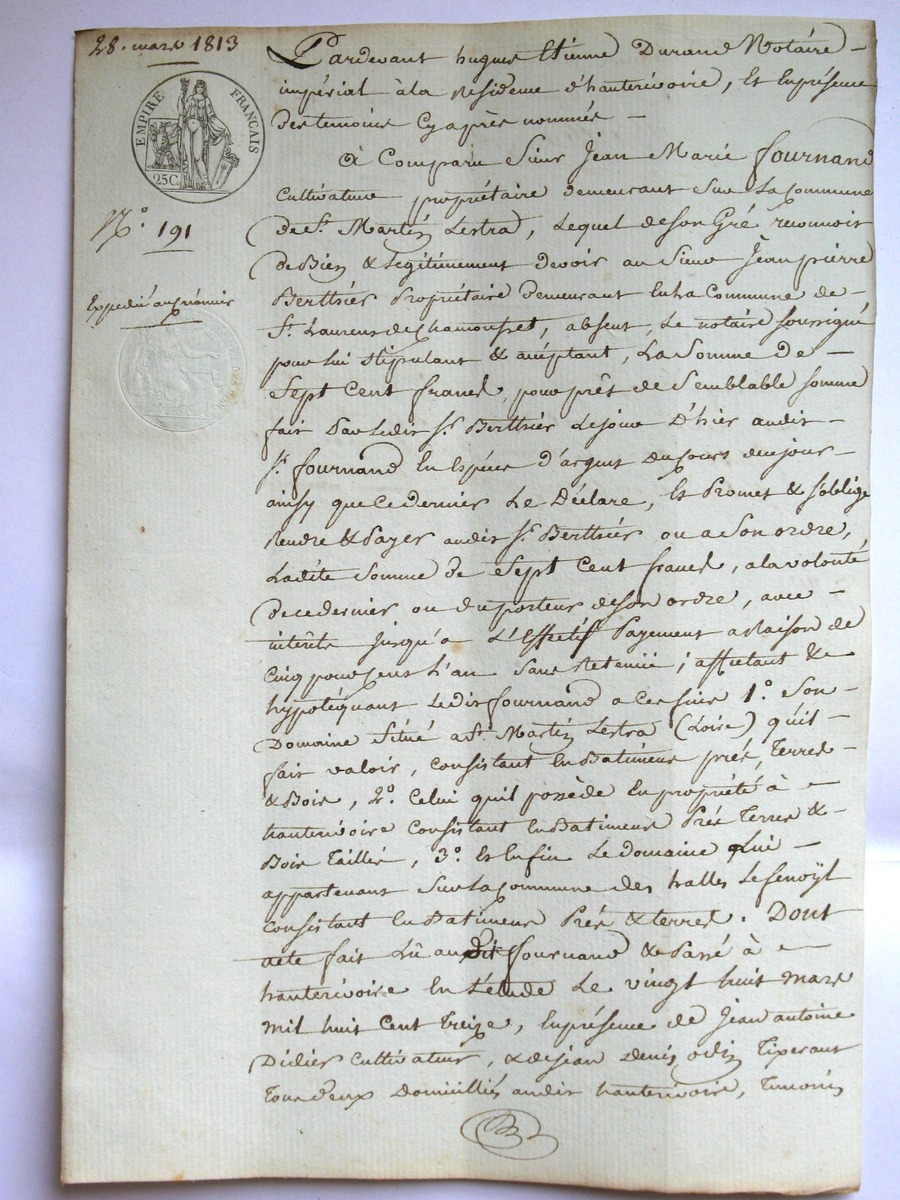 28. mars 1813
EMPIRE FRANÇAIS
25C
N.° 191
Expedié au créancier
Pardevant hugues Etienne Durand Notaire
impérial à la résidence d'hauterivoire, Et En présence
Des temoins Cy après nommés
A Comparu Sieur Jean Marie fournand
Cultivateur propriétaire demeurant Sur La Commune
De St. Martin Lestra, Lequel de son Gré reconnoit
De Bien & Legitimement Devoir au Sieur Jean pierre
Berthier Propriétaire Demeurant En La Commune de
St. Laurens de Chamousset, absent, Le notaire soussigné
pour lui stipulant & acceptant, La Somme De
Sept Cent francs, pour prêt de Semblable somme
fait Par Ledit Sr. Berthier Le jour D'hier audit
Sr. fournand En Espèces D'argent du Cours de ce jour
ainsy que Ce dernier Le Déclare, Et Promet & s'oblige
Rendre & Payer audit Sr. Berthier ou a Son ordre,
Ladite Somme de Sept Cent francs, a la volonté
De ce dernier ou du porteur de son ordre, avec
intérêts jusqu'a L'Effectif Payement a Raison de
Cinq pour Cent L'an Sans Retenüe; affectant &
hypotéquant Ledit fournand a Ces fins 1.° Son
Domaine Situé a St. Martin Lestra (Loire) qu'il
fait valoir, Consistant En Batimens prés, Terres
& Bois, 2.° Celui qu'il possède En propriété à
hauterivoire Consistant En Batimens Prés Terres &
Bois Taillés, 3.° Et Enfin Le Domaine Lui
appartenant Sur La Commune des halles Le fenoÿl
Consistant En Batimens Prés & terres. Dont
acte fait Lû audit fournand & Passé à
hauterivoire En L'étude Le vingt huit mars
mil huit Cent Treize, En présence de Jean antoine
Didier Cultivateur, & de jean Denis odin Tixerant
Tous Deux Domiciliés audit hauterivoire, Temoins